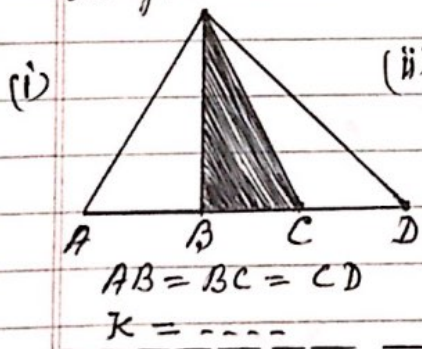 (i)
(ii)
A B C D
AB = BC = CD
K = ----